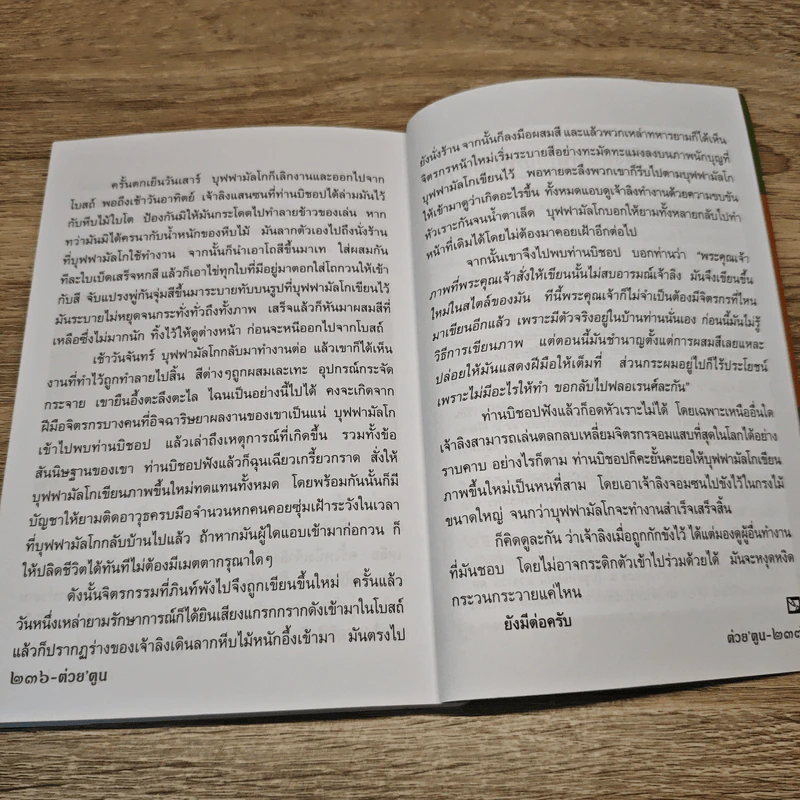 ครั้นตกเย็นวันเสาร์ บุฟฟามัลโกก็เลิกงานและออกไปจาก
โบสถ์ พอถึงเช้าวันอาทิตย์ เจ้าลิงแสนซนที่ท่านบิชอปได้ล่ามมันไว้
กับหีบไม้ใบโต ป้องกันมิให้มันกระโดดไปทำลายข้าวของเล่น หาก
ทว่ามันมิได้ครนากับน้ำหนักของหีบไม้ มันลากตัวเองไปถึงนั่งร้าน
ที่บุฟฟามัลโกใช้ทำงาน จากนั้นก็นำเอาโถสีขึ้นมาเท ใส่ผสมกัน
ทีละใบเบ็ดเสร็จหกสี แล้วก็เอาไข่ทุกใบที่มีอยู่มาตอกใส่โถกวนให้เข้า
กับสี จับแปรงพู่กันจุ่มสีขึ้นมาระบายทับบนรูปที่บุฟฟามัลโกเขียนไว้
มันระบายไม่หยุดจนกระทั่งทั่วถึงทั้งภาพ เสร็จแล้วก็หันมาผสมสีที่
เหลือซึ่งไม่มากนัก ทิ้งไว้ให้ดูต่างหน้า ก่อนจะหนีออกไปจากโบสถ์
เช้าวันจันทร์ บุฟฟามัลโกกลับมาทำงานต่อ แล้วเขาก็ได้เห็น
งานที่ทำไว้ถูกทำลายไปสิ้น สีต่างๆถูกผสมและเทะ อุปกรณ์กระจัด
กระจาย เขายืนอึ้งตะลึงตะไล ไฉนเป็นอย่างนี้ไปได้ คงจะเกิดจาก
ฝีมือจิตรกรบางคนที่อิจฉาริษยาผลงานของเขาเป็นแน่ บุฟฟามัลโก
เข้าไปพบท่านบิชอป แล้วเล่าถึงเหตุการณ์ที่เกิดขึ้น รวมทั้งข้อ
สันนิษฐานของเขา ท่านบิชอปฟังแล้วก็ฉุนเฉียวเกรี้ยวกราด สั่งให้
บุฟฟามัลโกเขียนภาพขึ้นใหม่ทดแทนทั้งหมด โดยพร้อมกันนั้นก็มี
บัญชาให้ยามติดอาวุธครบมือจำนวนหกคนคอยซุ่มเฝ้าระวังในเวลา
ที่บุฟฟามัลโกกลับบ้านไปแล้ว ถ้าหากมันผู้ใดแอบเข้ามาก่อกวน ก็
ให้ปลิดชีวิตได้ทันทีไม่ต้องมีเมตตากรุณาใดๆ
ดังนั้นจิตรกรรมที่ภินท์พังไปจึงถูกเขียนขึ้นใหม่ ครั้นแล้ว
วันหนึ่งเหล่ายามรักษาการณ์ก็ได้ยินเสียงแกรกกรากดังเข้ามาในโบสถ์
แล้วก็ปรากฏร่างของเจ้าลิงเดินลากหีบไม้หนักอึ้งเข้ามา มันตรงไป
๒๓๖-ต่วย'ตูน
ยังนั่งร้าน จากนั้นก็ลงมือผสมสี และแล้วพวกเหล่าทหารยามก็ได้เห็น
จิตรกรหน้าใหม่เริ่มระบายสีอย่างทะมัดทะแมงลงบนภาพนักบุญที่
บุฟฟามัลโกเขียนไว้ พอหายตะลึงพวกเขาก็รีบไปตามบุฟฟามัลโก
ให้เข้ามาดูว่าเกิดอะไรขึ้น ทั้งหมดแอบดูเจ้าลิงทำงานด้วยความขบขัน
หัวเราะกันจนน้ำตาเล็ด บุฟฟามัลโกบอกให้ยามทั้งหลายกลับไปทำ
หน้าที่เดิมได้โดยไม่ต้องมาคอยเฝ้าอีกต่อไป
จากนั้นเขาจึงไปพบท่านบิชอป บอกท่านว่า “พระคุณเจ้า
ภาพที่พระคุณเจ้าสั่งให้เขียนนั้นไม่สบอารมณ์เจ้าลิง มันจึงเขียนขึ้น
ใหม่ในสไตล์ของมัน ทีนี้พระคุณเจ้าก็ไม่จำเป็นต้องมีจิตรกรที่ไหน
มาเขียนอีกแล้ว เพราะมีตัวจริงอยู่ในบ้านท่านนั่นเอง ก่อนนี้มันไม่รู้
วิธีการเขียนภาพ แต่ตอนนี้มันชำนาญตั้งแต่การผสมสีเลยแหละ
ปล่อยให้มันแสดงฝีมือให้เต็มที่ ส่วนกระผมอยู่ไปก็ไร้ประโยชน์
เพราะไม่มีอะไรให้ทำ ขอกลับไปฟลอเรนซ์ละกัน”
ท่านบิชอปฟังแล้วก็อดหัวเราะไม่ได้ โดยเฉพาะเหนืออื่นใด
เจ้าลิงสามารถเล่นตลกลบเหลี่ยมจิตรกรจอมแสบที่สุดในโลกได้อย่าง
ราบคาบ อย่างไรก็ตาม ท่านบิชอปก็คะยั้นคะยอให้บุฟฟามัลโกเขียน
ภาพขึ้นใหม่เป็นหนที่สาม โดยเอาเจ้าลิงจอมซนไปขังไว้ในกรงไม้
ขนาดใหญ่ จนกว่าบุฟฟามัลโกจะทำงานสำเร็จเสร็จสิ้น
ก็คิดดูละกัน ว่าเจ้าลิงเมื่อถูกกักขังไว้ ได้แต่มองดูผู้อื่นทำงาน
ที่มันชอบ โดยไม่อาจกระดิกตัวเข้าไปร่วมด้วยได้ มันจะหงุดหงิด
กระวนกระวายแค่ไหน
ยังมีต่อครับ
ต่วย'ตูน-๒๓๗